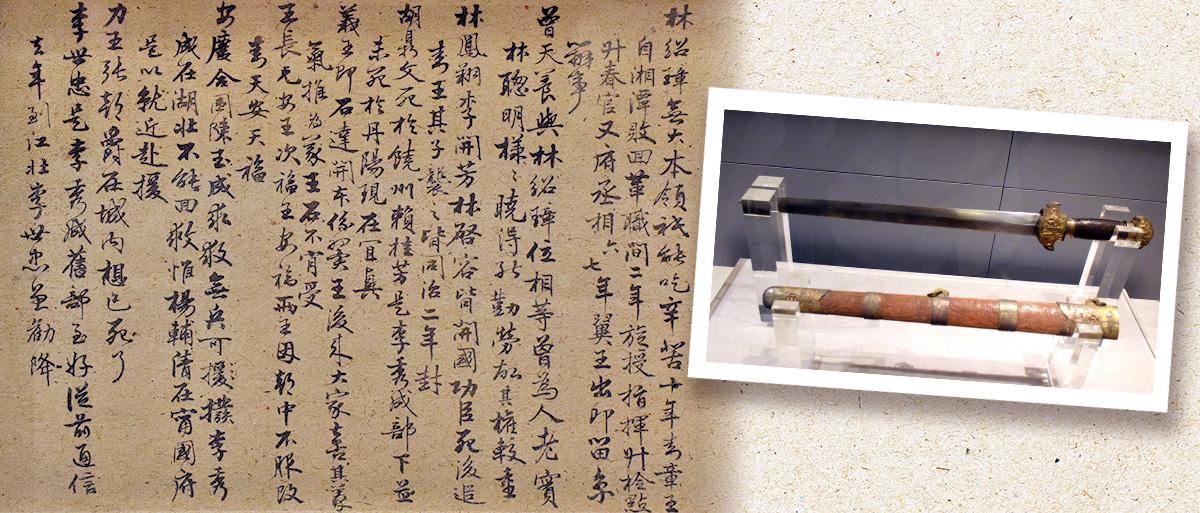 林紹璋無大本領祇能吃辛苦十年封章王
自湘潭敗回革職閒二年旋授指揮升檢點
升春官又府丞相六七年翼王出印留京
辦事
曾天養與林紹璋位相等曾為人老實
林聰明樣々曉得能勤勞故其權較重
林鳳翔李開芳林啟容皆開國功臣死後追
封王其子襲之皆同治二年封
胡鼎文死於饒州賴桂芳是李秀成部下並
未死於丹陽現在宜興
義王即石達開本係翼王後來大家喜其義
氣推為義王石不肯受
王長兄安王次福王安福兩王因朝中不服改
封天安天福
安慶合圍陳玉成求救無兵可援撥李秀
成在湖北不能回救惟楊輔清在甯國府
是以就近赴援
力王張朝爵在城內想已死了
李世忠是李秀成舊部至好從前通信
去年到江北李世忠並勸降